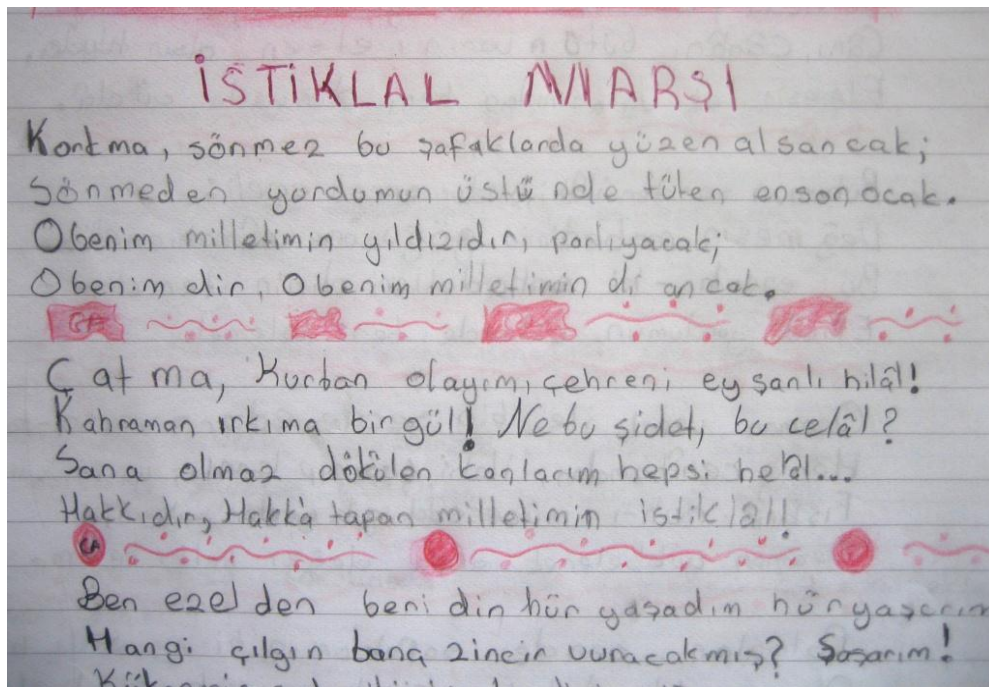 İSTİKLAL MARŞI
Korkma, sönmez bu şafaklarda yüzen alsancak;
Sönmeden yurdumun üstünde tüten enson ocak.
O benim milletimin yıldızıdır, parlıyacak;
O benim dir, O benim milletimin dir ancak.
Çatma, Kurban olayım, çehreni ey şanlı hilâl!
Kahraman ırkıma bir gül! Ne bu şidet, bu celâl?
Sana olmaz dökülen kanlarım hepsi helal...
Hakkıdır, Hakka tapan milletimin istiklâl!
Ben ezel den beni dir hür yaşadım hür yaşarım
Hangi çılgın bana zincir vuracakmış? Şaşarım!